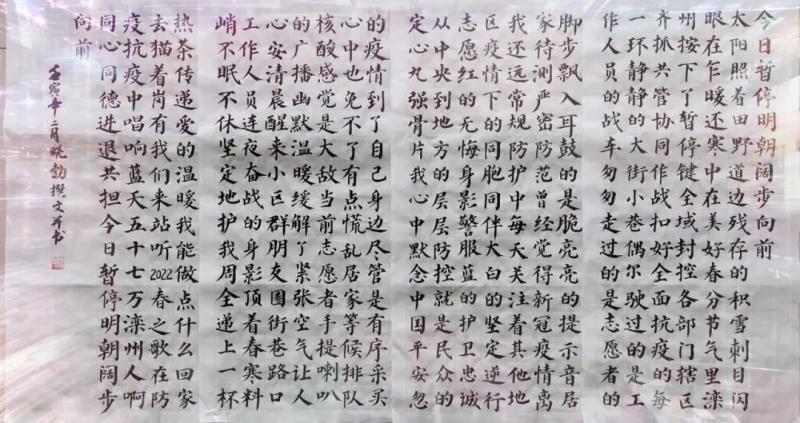 今日暂停明朝阔步向前
太阳照着田野道边残存的积雪刺目闪
眼在乍暖还寒中在美好春分节气里滦
州按下了暂停键全域封控各部门辖区
齐抓共管协同作战扣好全面抗疫的每
一环静静的大街小巷偶尔驶过的是工
作人员的战车匆匆走过的是志愿者的
脚步飘入耳鼓的是脆亮亮的提示音居
家待测严密防范曾经觉得新冠疫情离
我还远常规防护中每天关注着其他地
区疫情下的同胞同伴大白的坚定逆行
志愿红的无悔身影警服蓝的护卫忠诚
从中央到地方的层层防控就是民众的
定心丸强骨片我心中默念中国平安忽
的疫情到了自己身边尽管是有序采买
心中也免不了有点慌乱居家等候排队
核酸感觉是大敌当前志愿者手提喇叭
的广播幽默温暖缓解了紧张空气让人
心安清晨醒来小区群朋友圈街巷路口
工作人员连夜奋战的身影顶着春寒料
峭不眠不休坚定地护我周全递上一杯
热茶传递爱的温暖我能做点什么回家
去猫着岗有我们来站听2022春之歌在防
疫抗疫中唱响蓝天五十七万滦州人啊
同心同德进退共担今日暂停明朝阔步
向前
壬寅年二月晓撰文并书